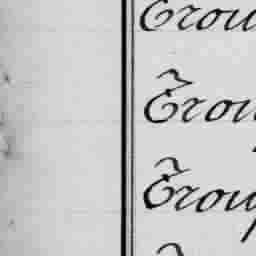 Trou
Trou
Troup